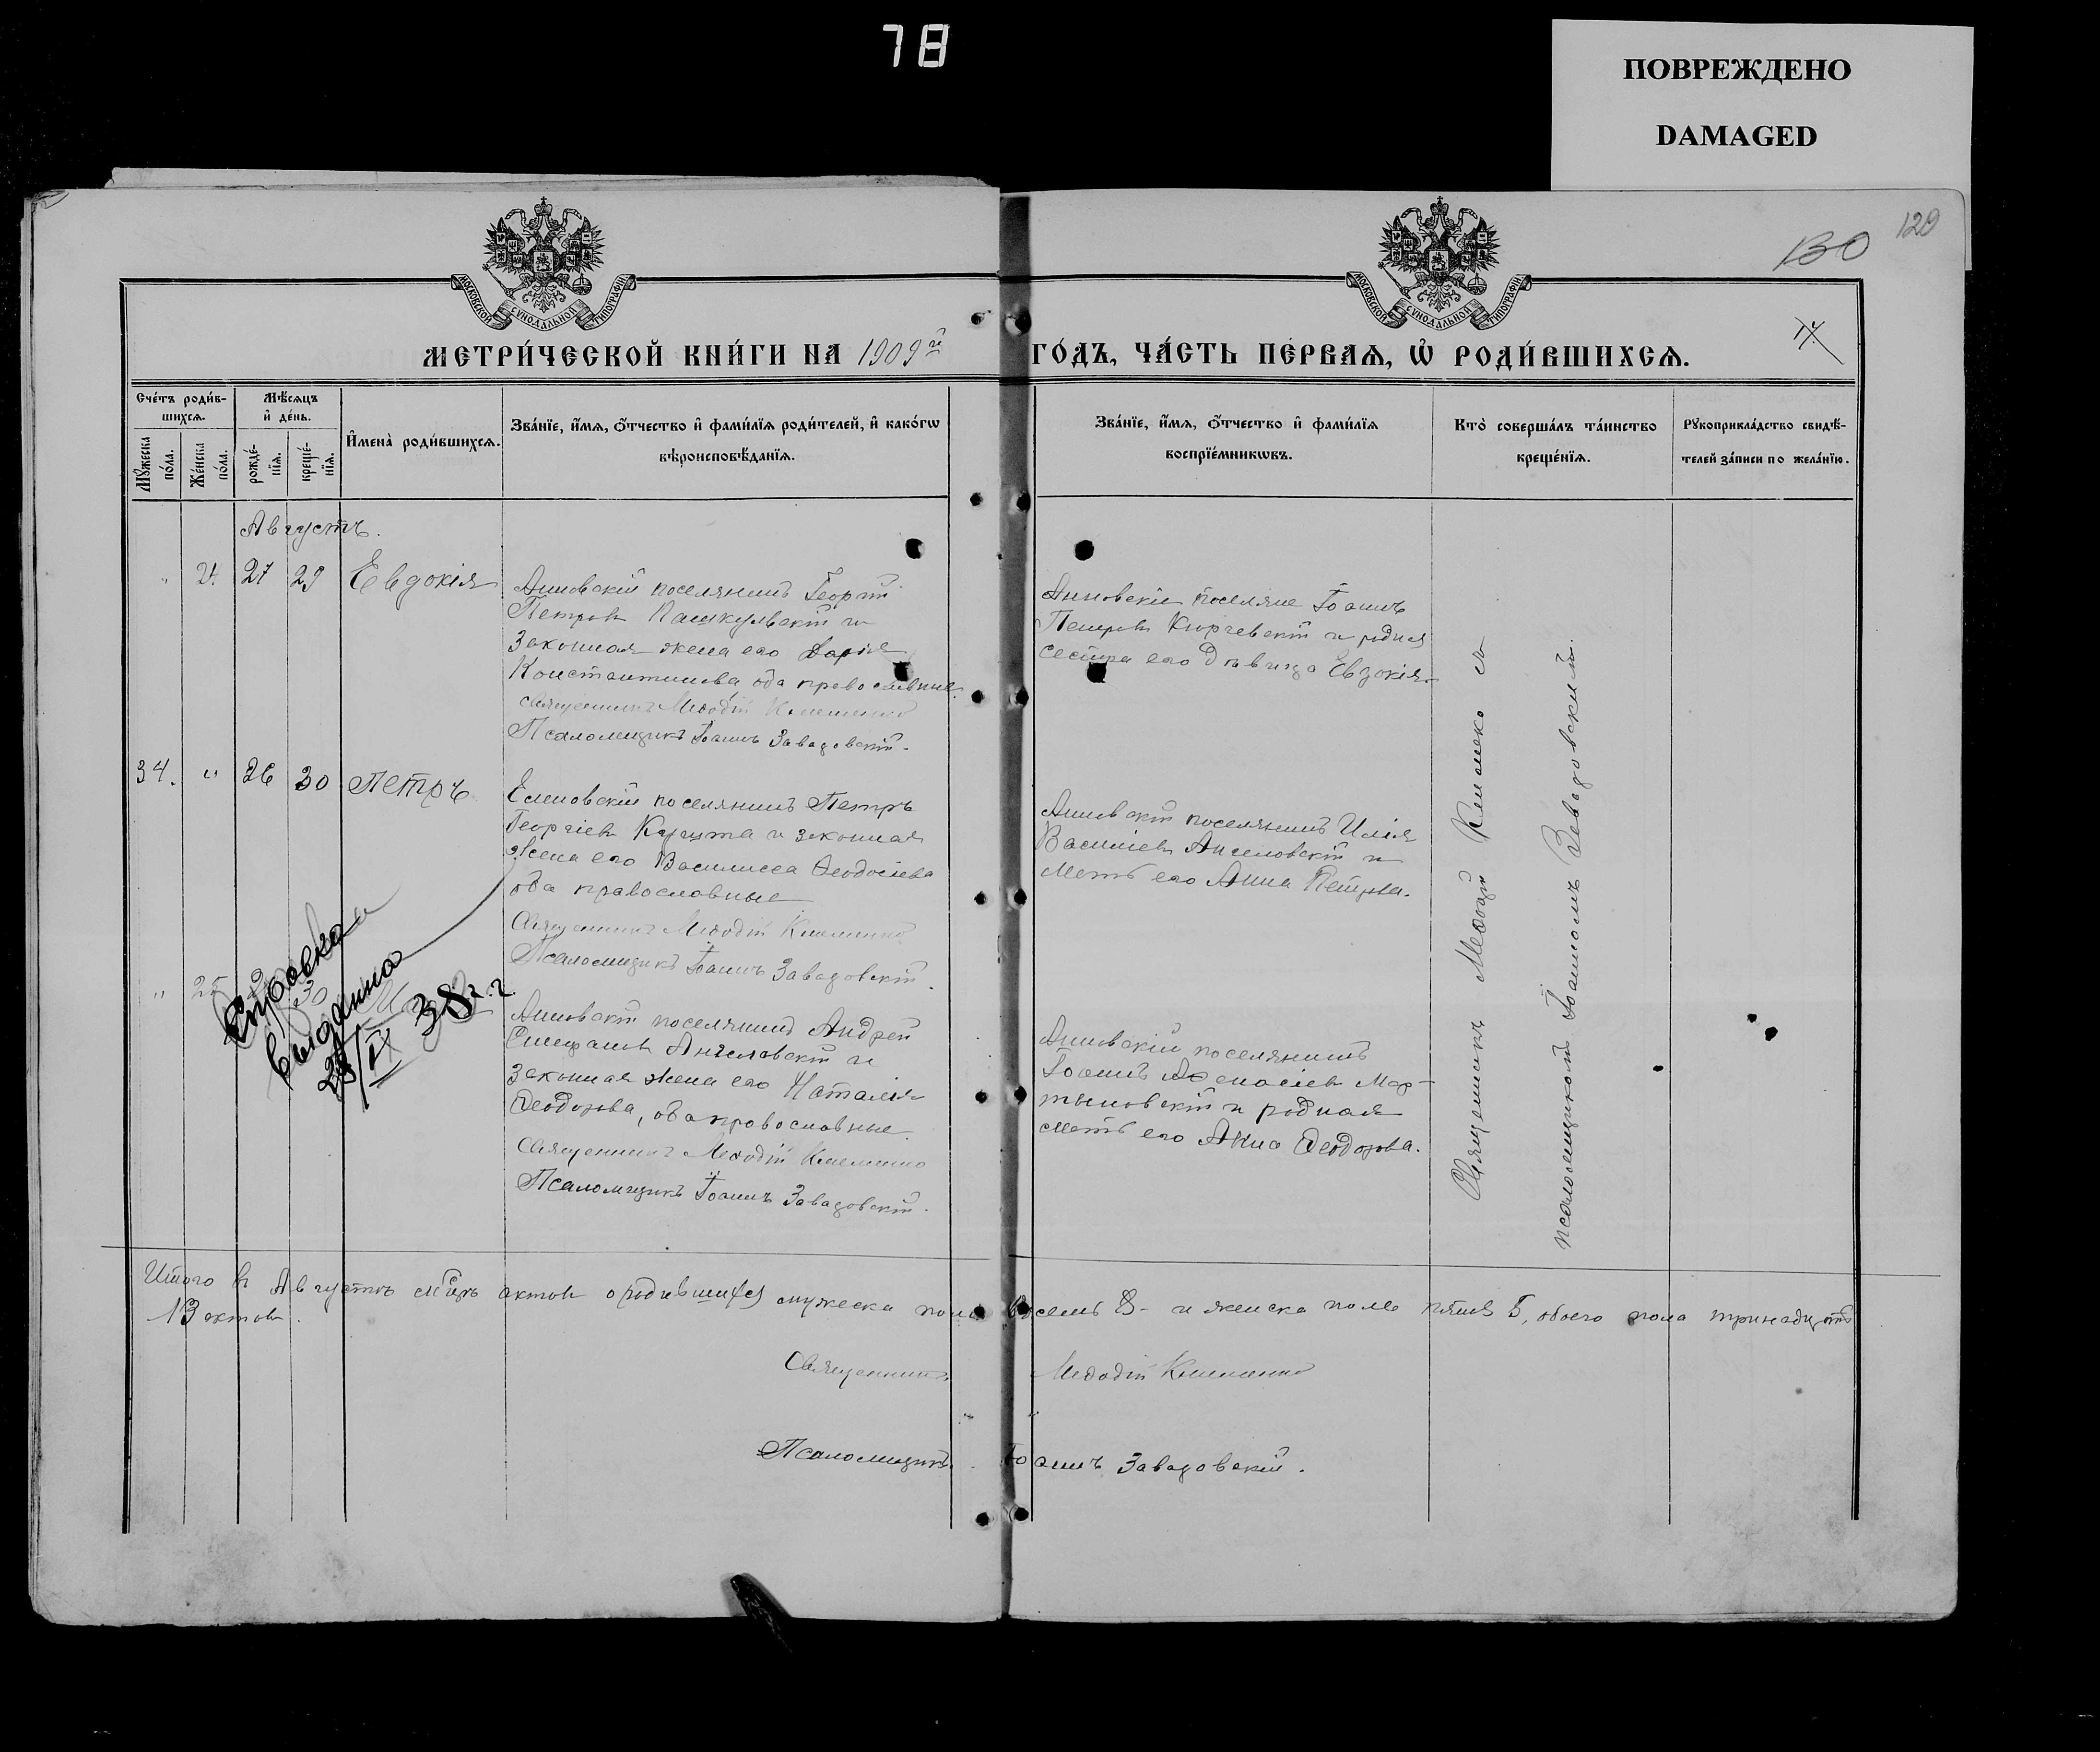 78
ПОВРЕЖДЕНО
DAMAGED
129
130
МОСКОВСКОЙ СѴНОДАЛЬНОЙ ТИПОГРАФІИ
МОСКОВСКОЙ СѴНОДАЛЬНОЙ ТИПОГРАФІИ
МЕТРИ́ЧЕСКОЙ КНИ́ГИ НА 1909й ГО́ДЪ, ЧА́СТЬ ПЕ́РВАѦ, Ѡ҆ РОДИ́ВШИХСѦ.
Сче́тъ роди́в-
шихсѧ.
Мꙋ́жеска
по́ла.
Же́нска
по́ла.
Мѣ́сѧцъ
и҆ де́нь.
рожде́-
нїѧ.
креще́-
нїѧ.
И҆мена̀ роди́вшихсѧ.
Зва́нїе, и҆́мѧ, ѻ҆́тчество и҆ фами́лїѧ роди́телей, и҆ како́гѡ
вѣроисповѣ́данїѧ.
Зва́нїе, и҆́мѧ, ѻ҆́тчество и҆ фами́лїѧ
воспрїе́мникѡвъ.
Кто̀ соверша́лъ та́инство
креще́нїѧ.
Рꙋкоприкла́дство свидѣ́-
телей за́писи по жела́нїю.
Августъ.
" 24 27 29 Евдокія
Анновскій поселянинъ Георгій
Петровъ Пашкулвскій и
законная жена его Дарія
Константинова оба православные.
Священникъ Меѳодій Клименко
Псаломщикъ Іоаннъ Завадовскій.
Анновскіе поселяне Іоаннъ
Петровъ Кюрчевскій и родная
сестра его дѣвица Евдокія.
34. " 26 30 Петръ
Еленовскій поселянинъ Петръ
Георгіевъ и законная
жена его Василисса Ѳеодосіева
оба православные
Священникъ Меѳодій Клименко
Псаломщикъ Іоаннъ Завадовскій.
Анновскій поселянинъ Илія
Василіевъ Ангеловскій и
мать его Анна Петрова.
" 25 30
Справка
выдана
38 г.
Анновскій поселянинъ Андрей
Стефановъ Ангеловскій и
законная жена его Наталія
Ѳеодорова, оба православные.
Священникъ Меѳодій Клименко
Псаломщикъ Іоаннъ Завадовскій.
Анновскій поселянинъ
Іоаннъ Аѳанасіевъ Мар-
тыновскій и родная
мать его Анна Ѳеодорова.
Священникъ Меѳодій Клименко съ
псаломщикомъ Іоанномъ Завадовскимъ.
Итого въ Августѣ мѣсяцѣ актовъ о родившихся мужеска пола восемь 8 - и женска пола пять 5, обоего пола тринадцать
13 актовъ.
Священникъ Меѳодій Клименко
Псаломщикъ Іоаннъ Завадовскій.